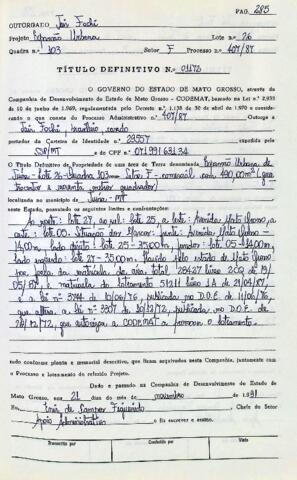 PAG. 285
OUTORGADO Jair Fochi
Projeto Expansão Urbana Lote nº 26
Quadra nº 103 Setor F Processo nº 407/87
TÍTULO DEFINITIVO Nº
O GOVERNO DO ESTADO DE MATO GROSSO, através da
Companhia de Desenvolvimento do Estado de Mato Grosso - CODEMAT, baseado na Lei nº 2.933
de 10 de junho de 1969, regulamentada pelo Decreto nº 1.138 de 30 de abril de 1970 e considerando
o que consta do Processo Administrativo nº 407/87 Outorga a
Jair Fochi, brasileiro, casado
portador da Carteira de Identidade nº expedida pela
SSP/MT e do CPF nº
O Título Definitivo de Propriedade de uma área de Terra denominada Expansão Urbana de
Juína - Lote 26 - Quadra 103 - Setor F - comercial com 490,00m² (quatrocentos
e noventa metros quadrados)
localizada no município de Juína - MT
neste Estado, possuindo os seguintes limites e confrontações:
Ao norte: lote 27, ao sul: lote 25, a leste: Avenida Mato Grosso, a
oeste: lote 05. Situação dos Marcos: frente: Avenida Mato Grosso -
14,00m, lado direito: lote 25 - 35,00m, fundos: lote 05 - 14,00m,
lado esquerdo: lote 27 - 35,00m, havido pelo Estado de Mato Grosso
por força da matrícula da área total 28427 livro 2CQ de 19/
05/81, e matrícula do loteamento 51211 livro 1A de 21/04/87,
e a lei nº 3744 de 10/06/76, publicada no D.O.E. de 11/06/76,
que altera a lei nº 3307 de 18/12/72, publicada no D.O.E. de
26/12/72, que autoriza a CODEMAT a promover o loteamento.
tudo conforme planta e memorial descritivo, que ficam arquivados nesta Companhia, juntamente com
o Processo e loteamento do referido Projeto.
Dado e passado na Companhia de Desenvolvimento do Estado de
Mato Grosso, aos 21 dias do mês de novembro de 1991
Eu, de Campos Figueiredo Chefe do Setor
Apoio Administrativo o fiz escrever e assino.
Transcrito por Conferido por Visto